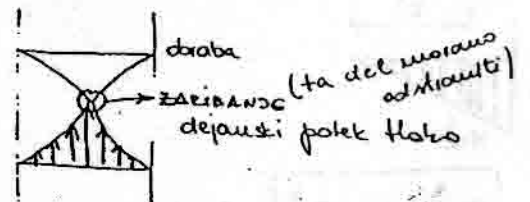 obraba
ZARIBANJE (ta del moramo
odstraniti)
dejanski potek tlaka